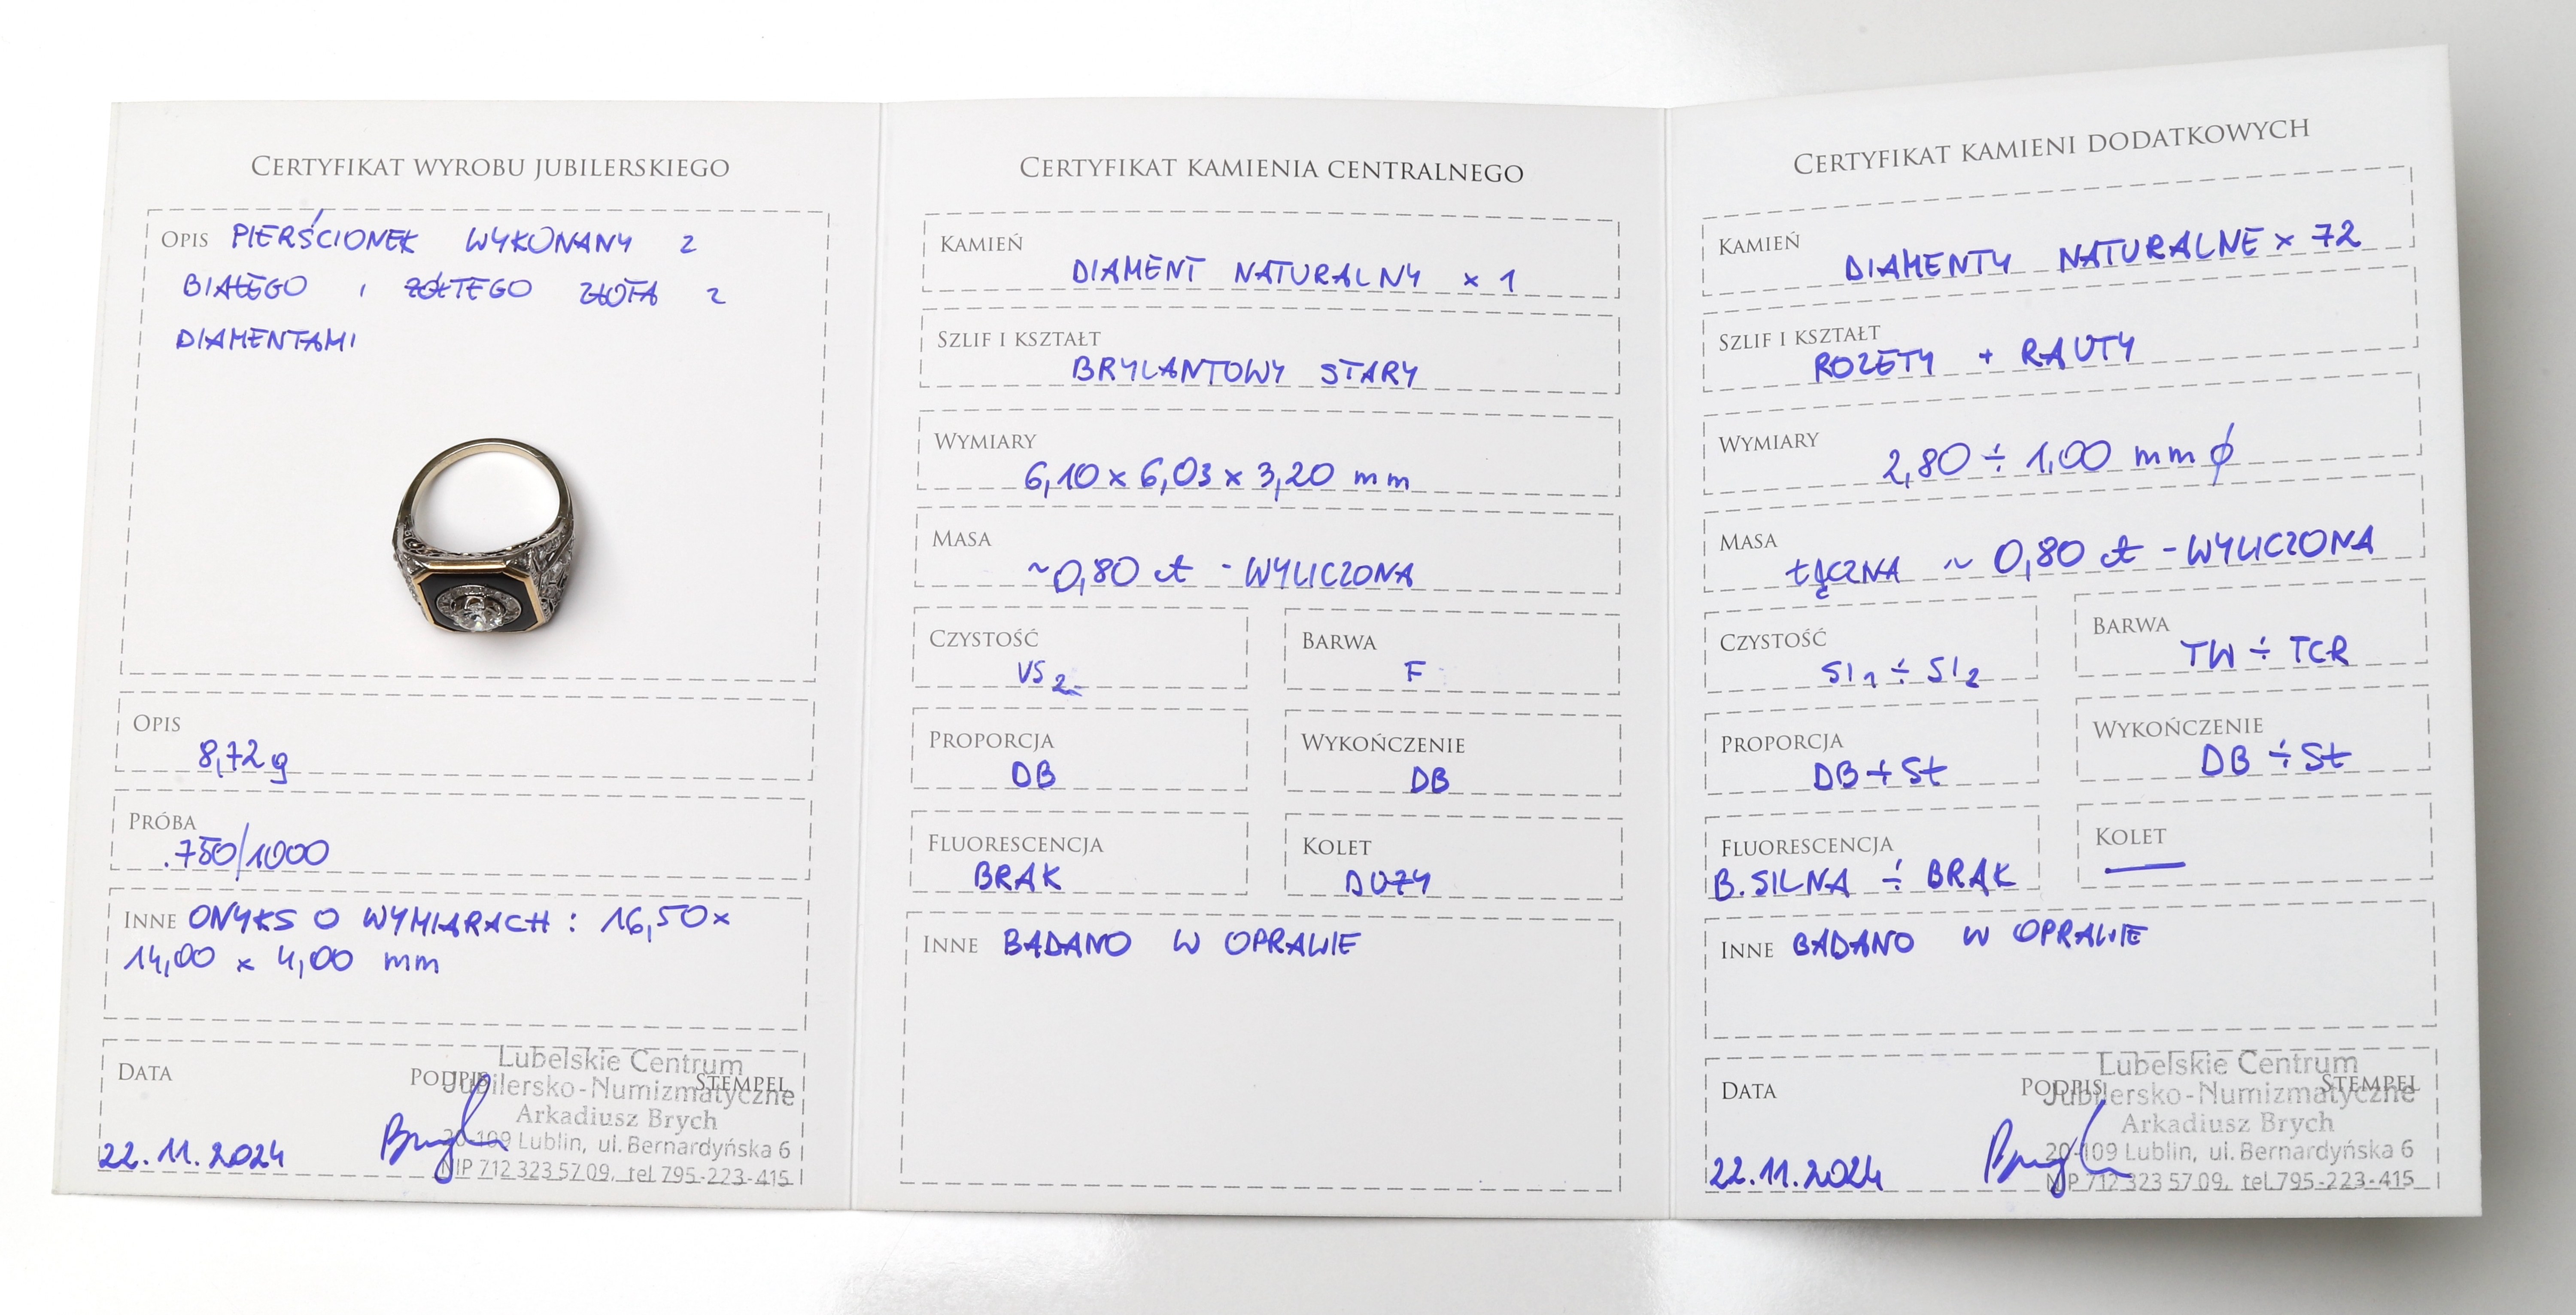 CERTYFIKAT WYROBU JUBILERSKIEGO
OPIS PIERŚCIONEK WYKONANY Z
BIAŁEGO I ŻÓŁTEGO ZŁOTA Z
DIAMENTAMI
OPIS
8,72 g
PRÓBA
.750/1000
INNE ONYKS O WYMIARACH: 16,50 x
14,00 x 4,00 mm
DATA PODPIS STEMPEL
22.11.2024
Lubelskie Centrum
Jubilersko-Numizmatyczne
Arkadiusz Brych
20-109 Lublin, ul. Bernardyńska 6
NIP 712 323 57 09, tel 795-223-415
CERTYFIKAT KAMIENIA CENTRALNEGO
KAMIEŃ
DIAMENT NATURALNY x 1
SZLIF I KSZTAŁT
BRYLANTOWY STARY
WYMIARY
6,10 x 6,03 x 3,20 mm
MASA
~0,80 ct - WYLICZONA
CZYSTOŚĆ
VS2
BARWA
F
PROPORCJA
DB
WYKOŃCZENIE
DB
FLUORESCENCJA
BRAK
KOLET
DUŻY
INNE BADANO W OPRAWIE
CERTYFIKAT KAMIENI DODATKOWYCH
KAMIEŃ
DIAMENTY NATURALNE x 72
SZLIF I KSZTAŁT
ROZETY + RAUTY
WYMIARY
2,80 ÷ 1,00 mm ϕ
MASA
ŁĄCZNA ~ 0,80 ct - WYLICZONA
CZYSTOŚĆ
SI1 ÷ SI2
BARWA
TW ÷ TCR
PROPORCJA
DB ÷ St
WYKOŃCZENIE
DB ÷ St
FLUORESCENCJA
B. SILNA ÷ BRAK
KOLET
—
INNE BADANO W OPRAWIE
DATA PODPIS STEMPEL
22.11.2024
Lubelskie Centrum
Jubilersko-Numizmatyczne
Arkadiusz Brych
20-109 Lublin, ul. Bernardyńska 6
NIP 712 323 57 09, tel. 795-223-415